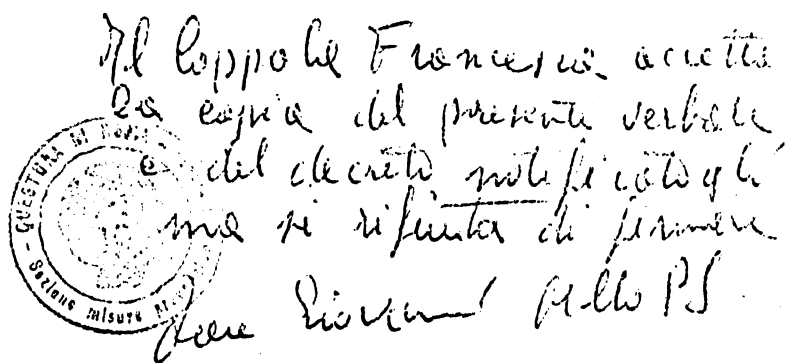 Il Coppola Francesco accetta
la copia del presente verbale
e del decreto notificatogli
ma si rifiuta di firmare
Giovanni PS
QUESTURA DI
Sezione misure